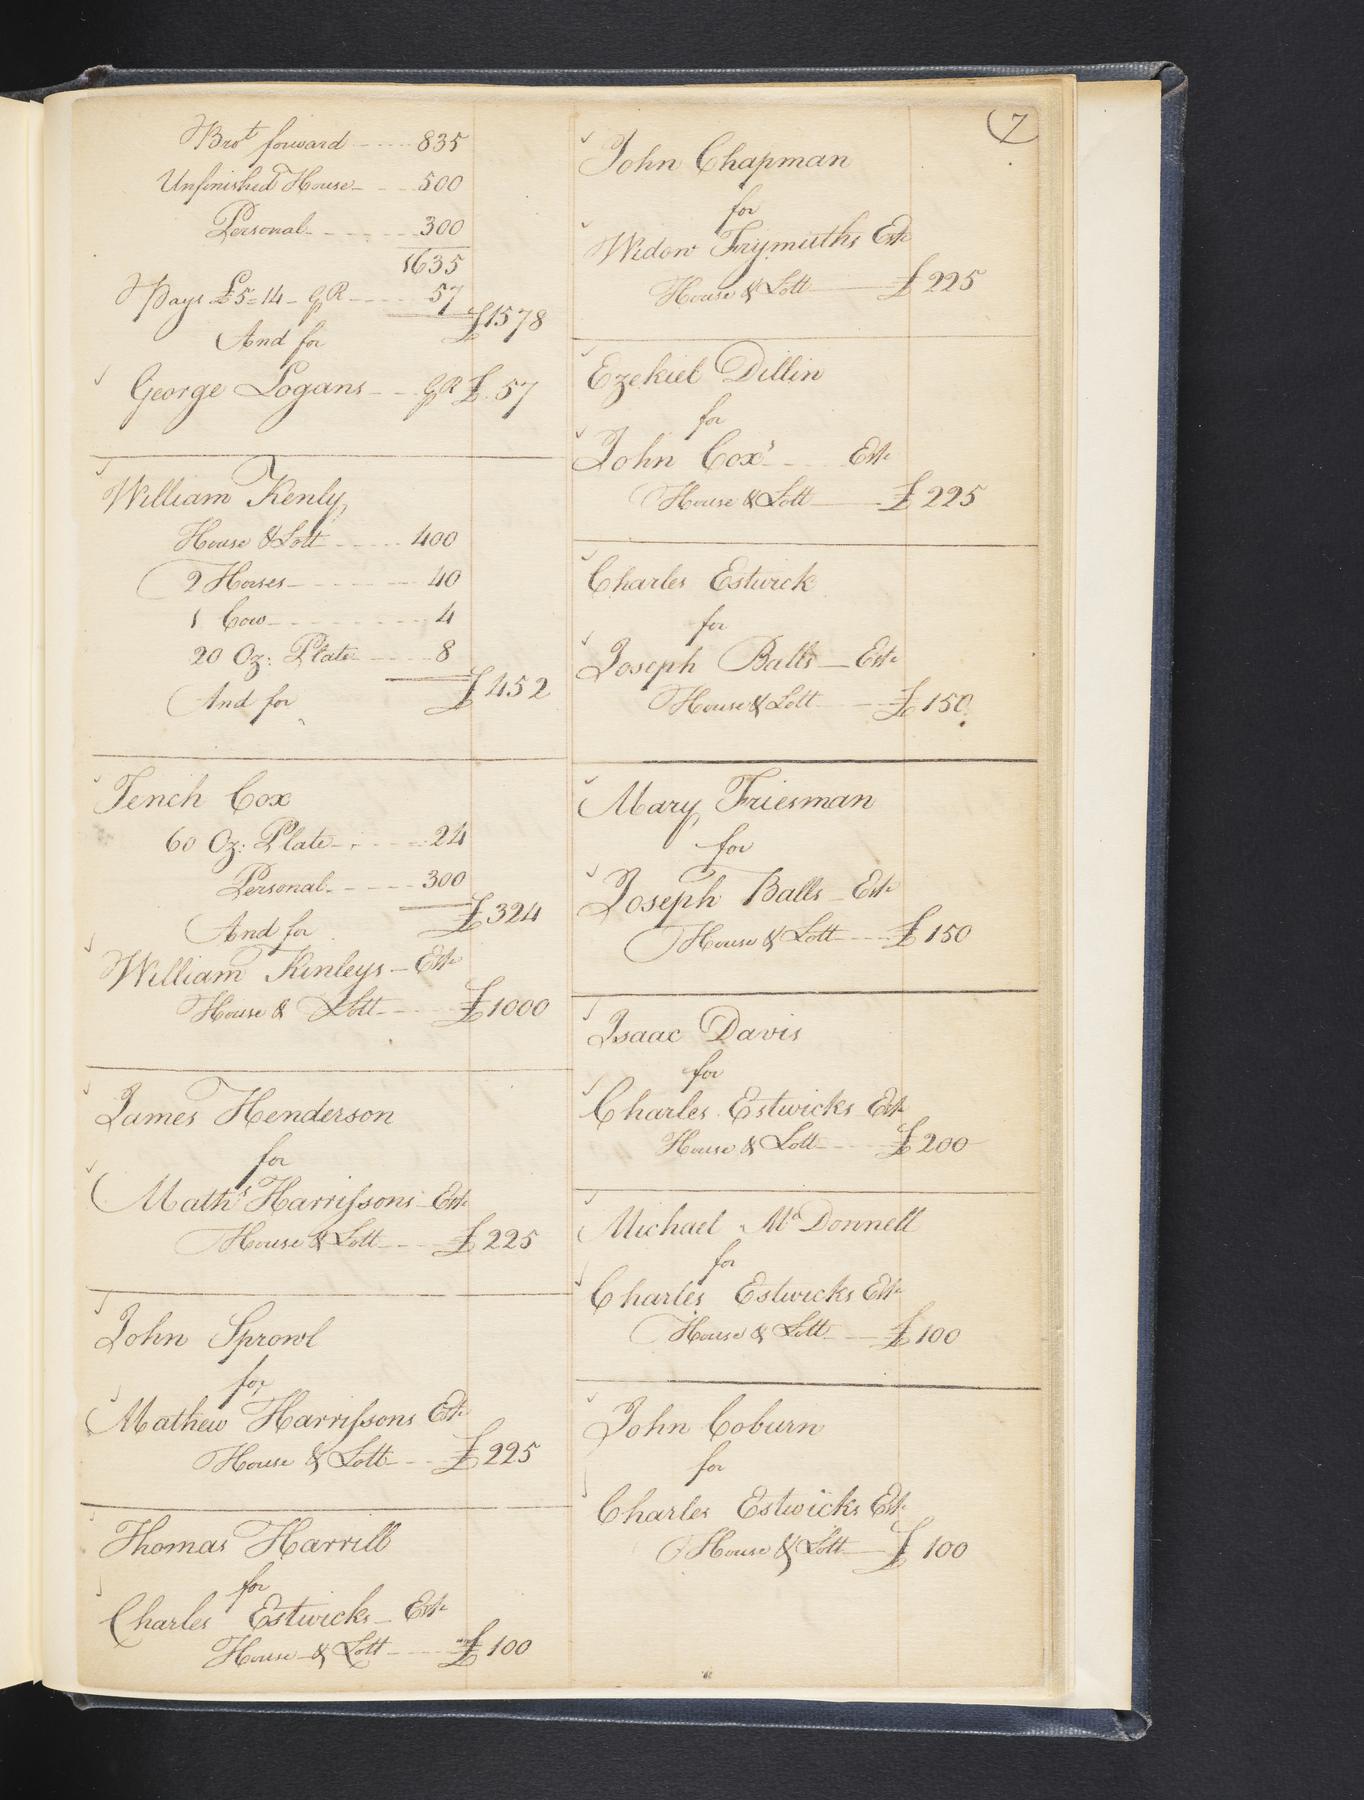 7
Brot forward 835
Unfinished House 500
Personal 300
1635
Pays £5-14- GR 57
£1578
And for
George Logans GR £57
William Kenly
House & Lott 400
2 Horses 40
1 Cow 4
20 Oz: Plate 8
£452
And for
Tench Cox
60 Oz: Plate 24
Personal 300
£324
And for
William Kenleys Este
House & Lott £1000
James Henderson
for
Maths Harrissons Este
House & Lott £225
John Sprowl
for
Mathew Harrissons Este
House & Lott £225
Thomas Harrill
for
Charles Estwicks Este
House & Lott £100
John Chapman
for
Widow Frymuths Este
House & Lott £225
Ezekiel Dillin
for
John Cox's Este
House & Lott £225
Charles Estwick
for
Joseph Balls Este
House & Lott £150
Mary Friesman
for
Joseph Balls Este
House & Lott £150
Isaac Davis
for
Charles Estwicks Este
House & Lott £200
Michael McDonnell
for
Charles Estwicks Este
House & Lott £100
John Coburn
for
Charles Estwicks Este
House & Lott £100